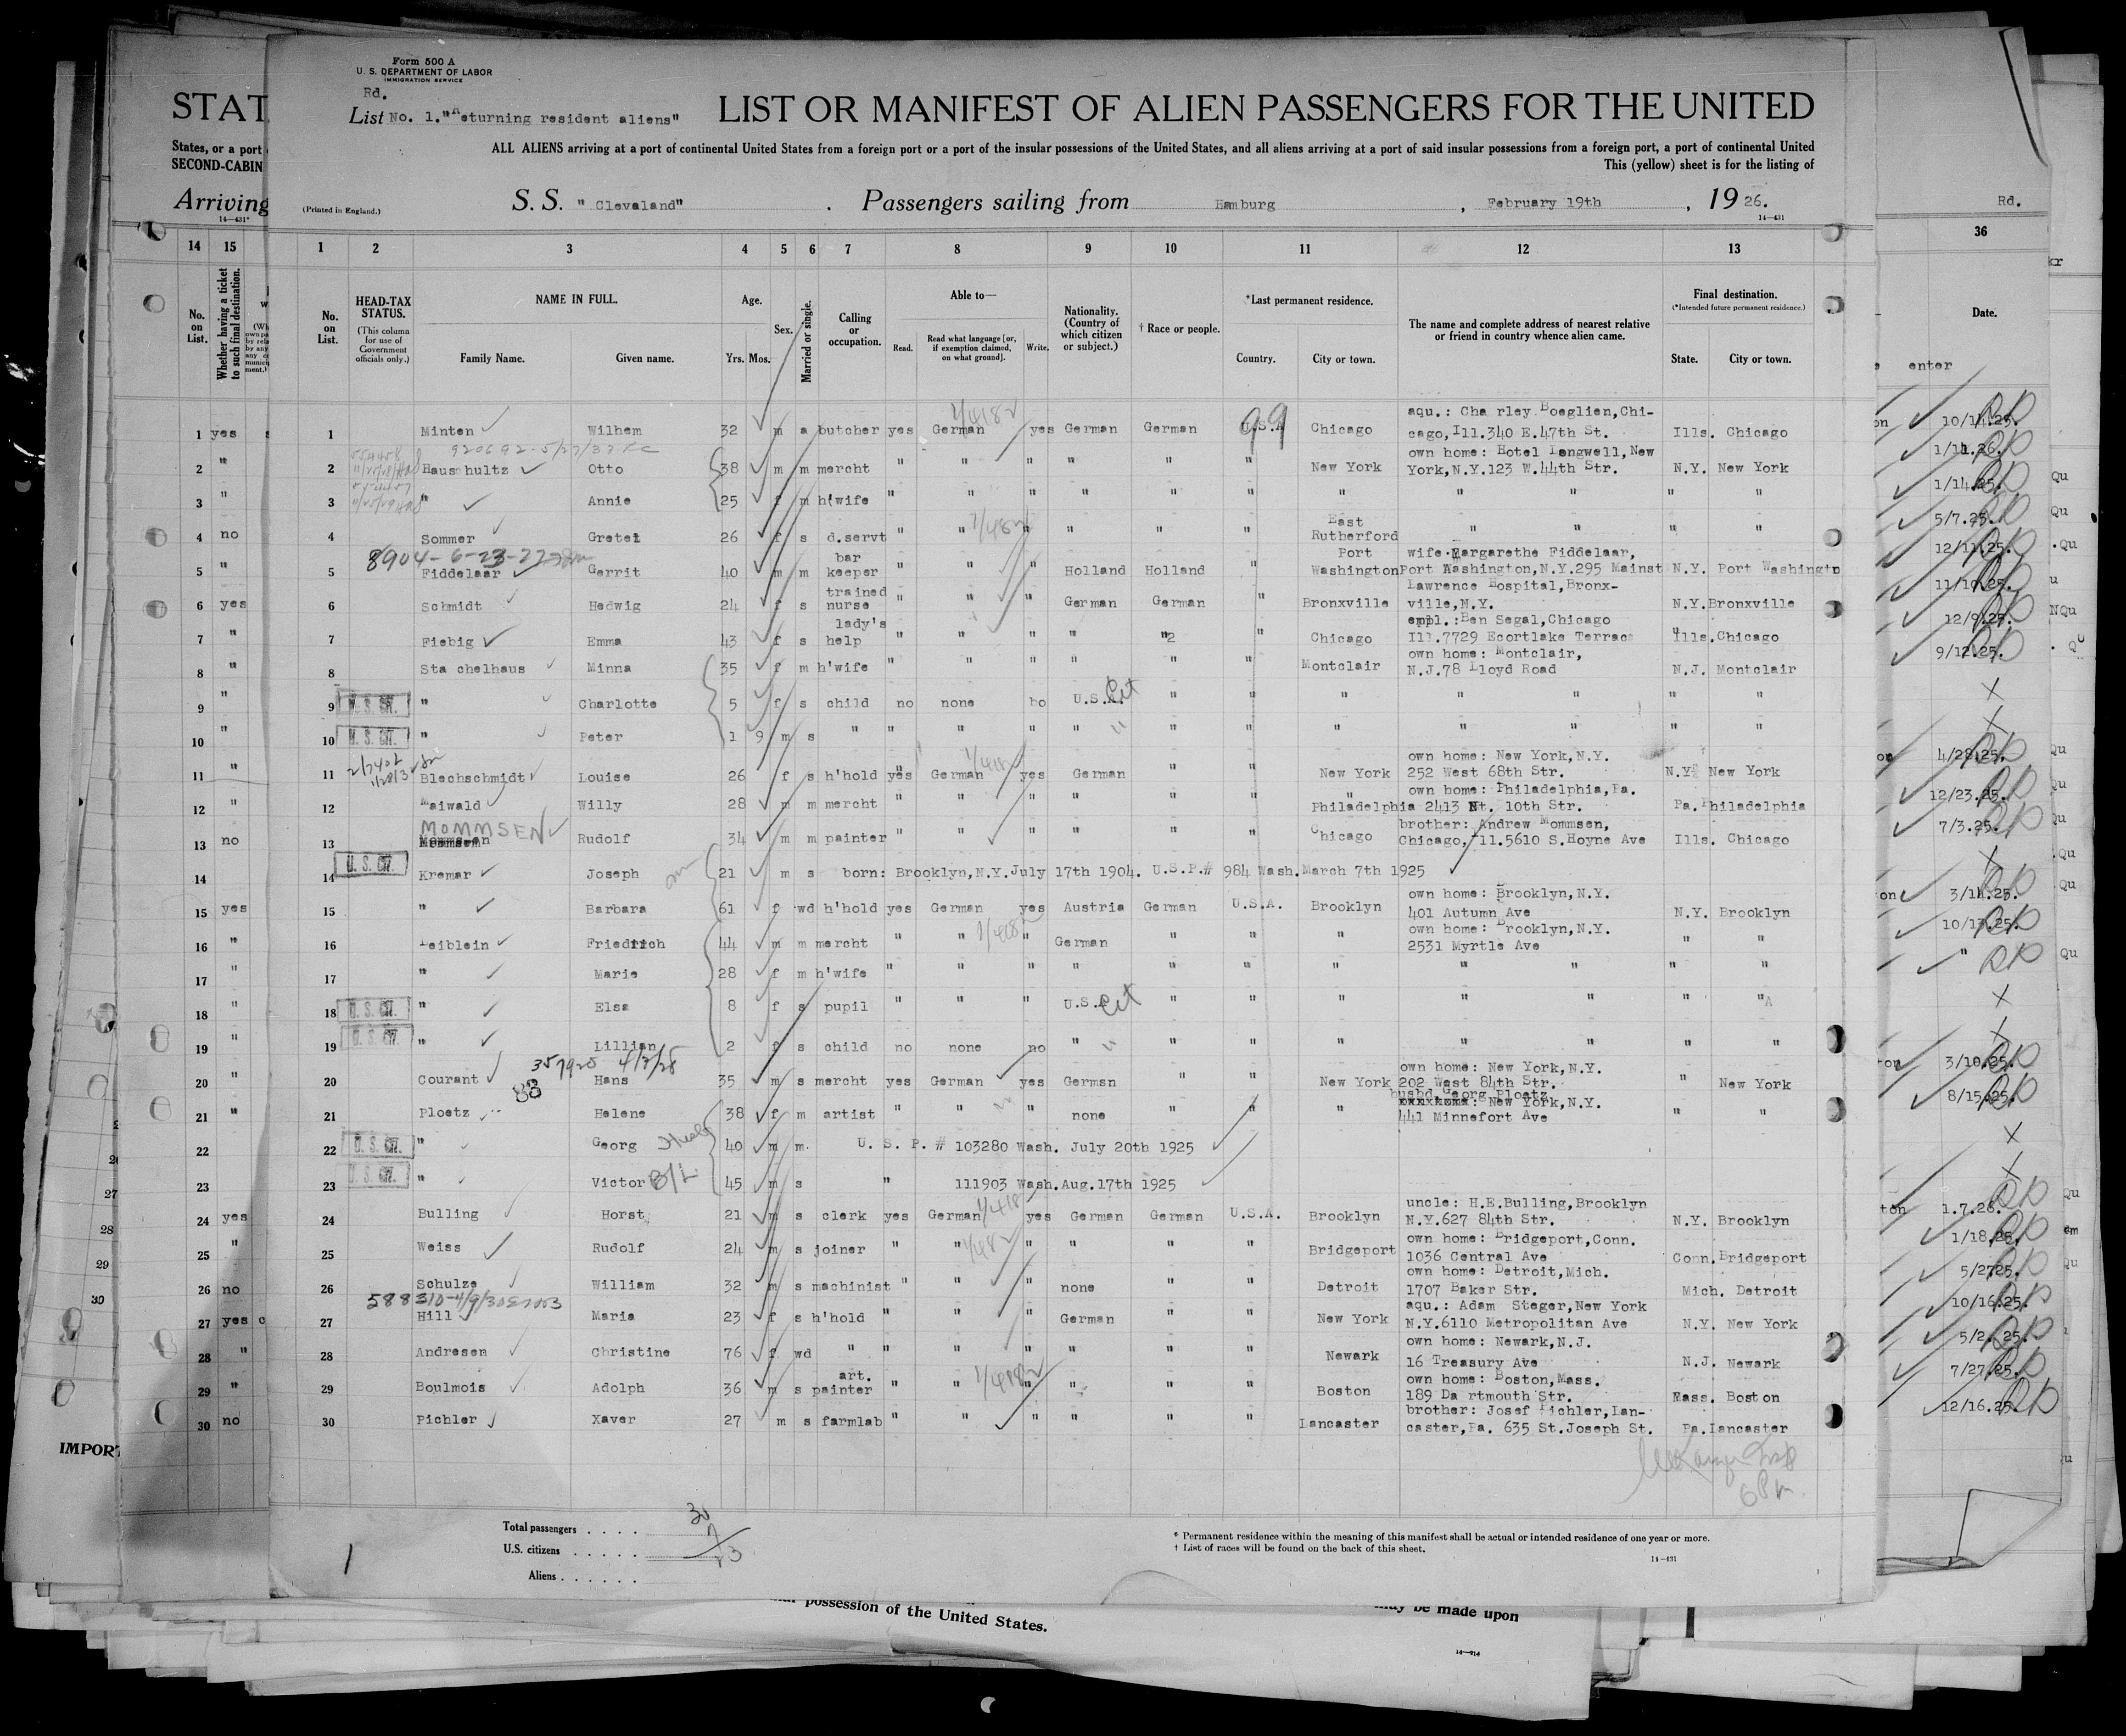 Form 500 A
U. S. DEPARTMENT OF LABOR
IMMIGRATION SERVICE
Rd.
List No. 1."Returning resident aliens"
STAT
LIST OR MANIFEST OF ALIEN PASSENGERS FOR THE UNITED
States, or a port
SECOND-CABIN
ALL ALIENS arriving at a port of continental United States from a foreign port or a port of the insular possessions of the United States, and all aliens arriving at a port of said insular possessions from a foreign port, a port of continental United
This (yellow) sheet is for the listing of
Arriving
14—431*
(Printed in England.)
S. S. " Clevaland" . Passengers sailing from Hamburg , February 19th , 19 26.
14—431
Rd.
14 15 1 2 3 4 5 6 7 8 9 10 11 12 13 36
No. on List.
Whether having a ticket to such final destination.
No. on List.
HEAD-TAX STATUS.
(This column for use of Government officials only.)
NAME IN FULL.
Family Name. Given name.
Age.
Yrs. Mos.
Sex.
Married or single.
Calling or occupation.
Able to—
Read. Read what language [or, if exemption claimed, on what ground]. Write.
Nationality. (Country of which citizen or subject.)
† Race or people.
*Last permanent residence.
Country. City or town.
The name and complete address of nearest relative or friend in country whence alien came.
Final destination.
(*Intended future permanent residence.)
State. City or town.
Date.
enter
aqu.: Cha rley Boeglien, Chi-
1 yes 1 Minten Wilhem 32 m a butcher yes German yes German German U.S.A. 99 Chicago cago,Ill.340 E.47th St. Ills. Chicago 10/14.25.
920692-5/27/37
own home: Hotel Langwell, New
2 " 2 Hauschultz Otto 38 m m mercht " " " " " " New York York,N.Y.123 W.44th Str. N.Y. New York 1/11.26.
3 " 3 " Annie 25 f m h'wife " " " " " " " " " " " 1/14.25.
4 no 4 Sommer Gretel 26 f s d.servt " " " " " " East Rutherford " " " " 5/7.25.
8904-6-23-27
5 " 5 Fiddelaar Gerrit 40 m m bar keeper " " " Holland Holland " Port Washington wife.Margarethe Fiddelaar,
Port Washington,N.Y.295 Mainst N.Y. Port Washingtn 12/11.25.
6 yes 6 Schmidt Hedwig 24 f s trained nurse " " " German German " Bronxville Lawrence Hospital,Bronx-
ville,N.Y. N.Y.Bronxville 11/10.25.
7 " 7 Fiebig Emma 43 f s lady's help " " " " " " Chicago empl.:Ben Segal,Chicago
Ill.7729 Ecortlake Terrac Ills.Chicago 12/9.25.
8 " 8 Sta chelhaus Minna 35 f m h'wife " " " " " " Montclair own home: Montclair,
N.J.78 Lloyd Road N.J. Montclair 9/12.25.
9 " 9 U. S. CIT. " Charlotte 5 f s child no none no U.S.A. Cit " " " " " " "
10 " 10 U. S. CIT. " Peter 1 9 m s " " " " " " " " " " " "
11 " 11 Blechschmidt Louise 26 f s h'hold yes German yes German " " New York own home: New York,N.Y.
252 West 68th Str. N.Y. New York 4/28.25.
12 " 12 Maiwald Willy 28 m m mercht " " " " " " Philadelphia own home: Philadelphia,Pa.
2413 Nt. 10th Str. Pa. Philadelphia 12/23.25.
MOMMSEN
13 no 13 Rudolf 34 m m painter " " " " " " Chicago brother: Andrew Mommsen,
Chicago, Ill.5610 S.Hoyne Ave Ills. Chicago 7/3.25.
14 14 U. S. CIT. Kremar Joseph 21 m s born: Brooklyn,N.Y.July 17th 1904. U.S.P.# 984 Wash.March 7th 1925
15 yes 15 " Barbara 61 f wd h'hold yes German yes Austria German U.S.A. Brooklyn own home: Brooklyn,N.Y.
401 Autumn Ave N.Y. Brooklyn 3/14.25.
16 " 16 Leiblein Friedrich 44 m m mercht " " " German " " " own home: Brooklyn,N.Y.
2531 Myrtle Ave " " 10/13.25.
17 " 17 " Marie 28 f m h'wife " " " " " " " " " " " "
18 " 18 U. S. CIT. " Elsa 8 f s pupil " " " U.S. Cit " " " " " " "
19 " 19 U. S. CIT. " Lillian 2 f s child no none no " " " " " " " "
357925 4/3/28
20 " 20 Courant Hans 35 m s mercht yes German yes Germsn " " New York own home: New York,N.Y.
202 West 84th Str. " New York 3/10.25.
88
21 " 21 Ploetz Helene 38 f m artist " " " none " " " husbd.Georg Ploetz
: New York,N.Y.
441 Minnefort Ave " " 8/15.25.
22 22 U. S. CIT. " Georg 40 m m. U. S. P. # 103280 Wash. July 20th 1925
23 23 U. S. CIT. " Victor 45 m s " 111903 Wash.Aug.17th 1925
24 yes 24 Bulling Horst 21 m s clerk yes German yes German German U.S.A. Brooklyn uncle: H.E.Bulling,Brooklyn
N.Y.627 84th Str. N.Y. Brooklyn 1.7.26.
25 " 25 Weiss Rudolf 24 m s joiner " " " " " " Bridgeport own home: Bridgeport,Conn.
1036 Central Ave Conn.Bridgeport 1/18.25.
26 no 26 Schulze William 32 m s machinist " " " none " " Detroit own home: Detroit,Mich.
1707 Baker Str. Mich. Detroit 5/2725.
27 yes 27 Hill Maria 23 f s h'hold " " " German " " New York aqu.: Adam Steger,New York
N.Y.6110 Metropolitan Ave N.Y. New York 10/16.25.
28 " 28 Andresen Christine 76 f wd " " " " " " " Newark own home: Newark,N.J.
16 Treasury Ave N.J. Newark 5/2.25.
29 " 29 Boulmois Adolph 36 m s art. painter " " " " " " Boston own home: Boston,Mass.
189 Da rtmouth Str. Mass. Boston 7/27.25.
30 no 30 Pichler Xaver 27 m s farmlab " " " " " " Lancaster brother: Josef Pichler,Lan-
caster,Pa. 635 St.Joseph St. Pa.Lancaster 12/16.25.
IMPORT
Total passengers . . . . 30
U.S. citizens . . . . . 7
Aliens . . . . . . 23
* Permanent residence within the meaning of this manifest shall be actual or intended residence of one year or more.
† List of races will be found on the back of this sheet.
14—431
possession of the United States.
may be made upon